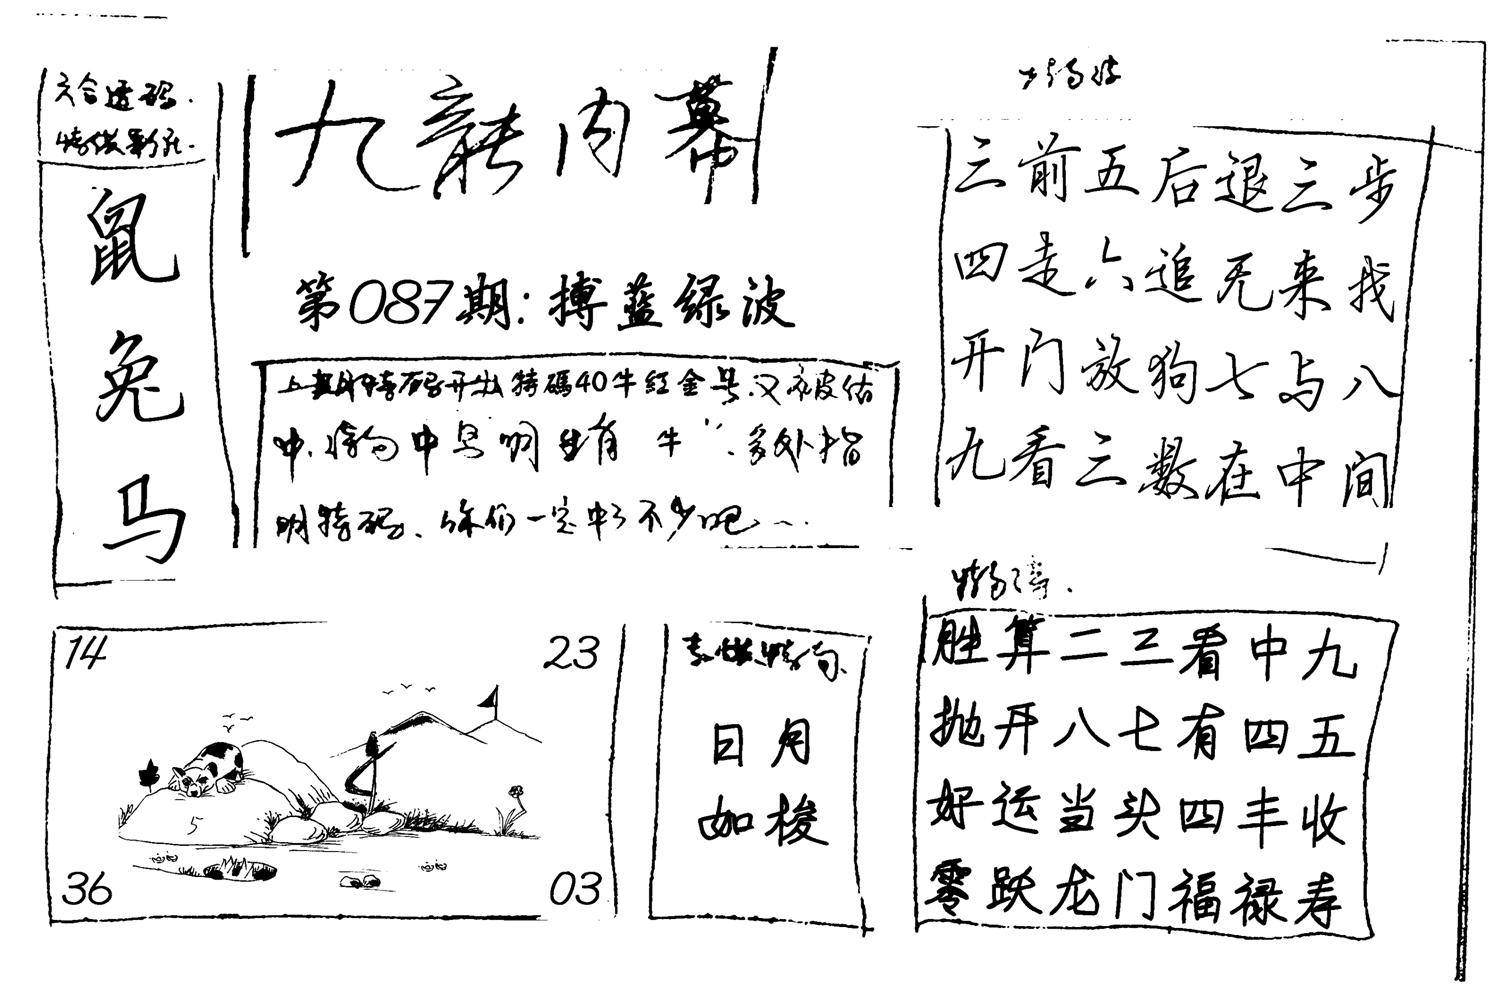 六合透码.
鼠
兔
马
九龍内幕
第087期:搏蓝绿波
上期特码开出特碼40牛紅金号.又被估
中.特句中号明生肖 牛".多处指
明特码、你们一定中了不少吧
三前五后退三步
四走六追无来找
开门放狗七与八
九看三数在中间
胜算二三看中九
抛开八七有四五
好运当头四丰收
零跃龙门福禄寿
14
23
5
36
03
日月
如梭